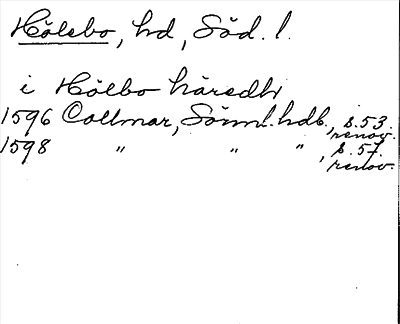 Hölebo, hd, Söd. l.
i Hölbo häredh
1596 Collmar, Sörml. hdb., s. 53.
renov.
1598 " " ", s. 57.
renov.